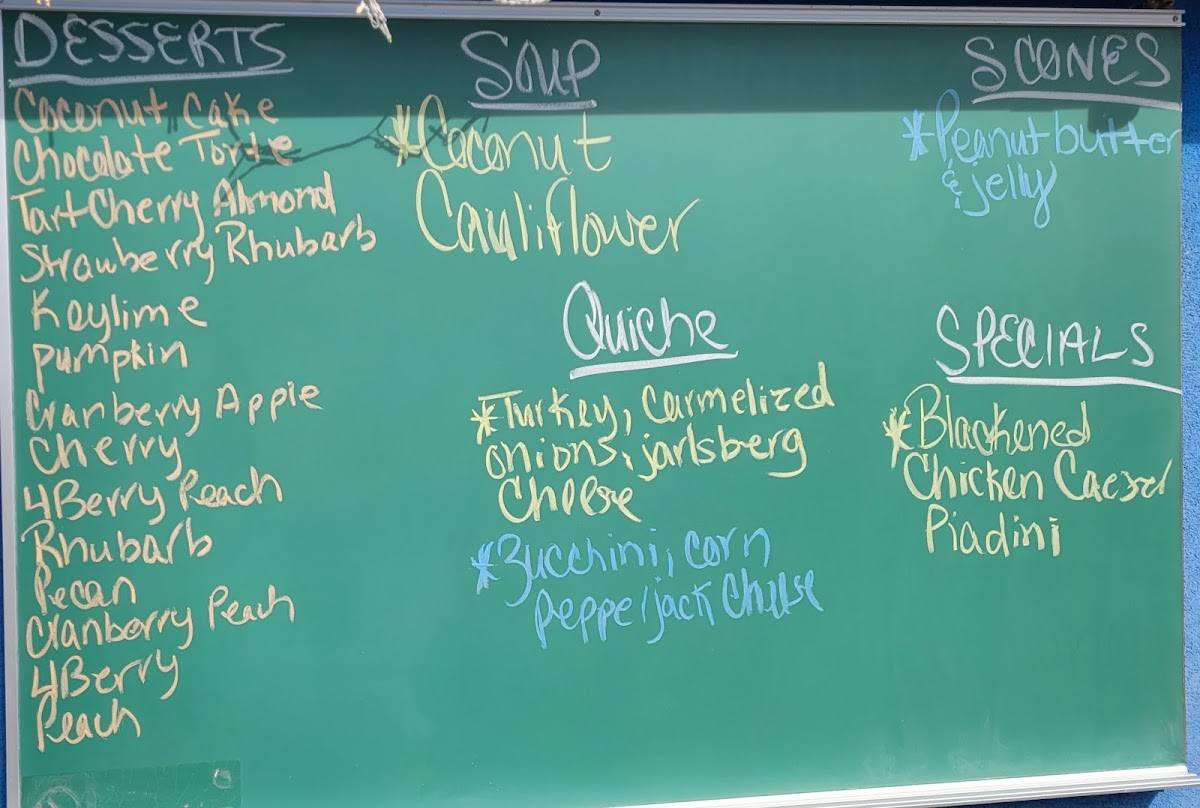 DESSERTS
Coconut Cake
Chocolate Torte
Tart Cherry Almond
Strawberry Rhubarb
Keylime
pumpkin
Cranberry Apple
Cherry
4Berry Peach
Rhubarb
Pecan
Cranberry Peach
4Berry
Peach
SOUP
*Coconut
Cauliflower
Quiche
*Turkey, Carmelized
onions, jarlsberg
Cheese
*Zucchini, corn
pepperjack Cheese
SCONES
*Peanut butter
& jelly
SPECIALS
*Blackened
Chicken Caesar
Piadini